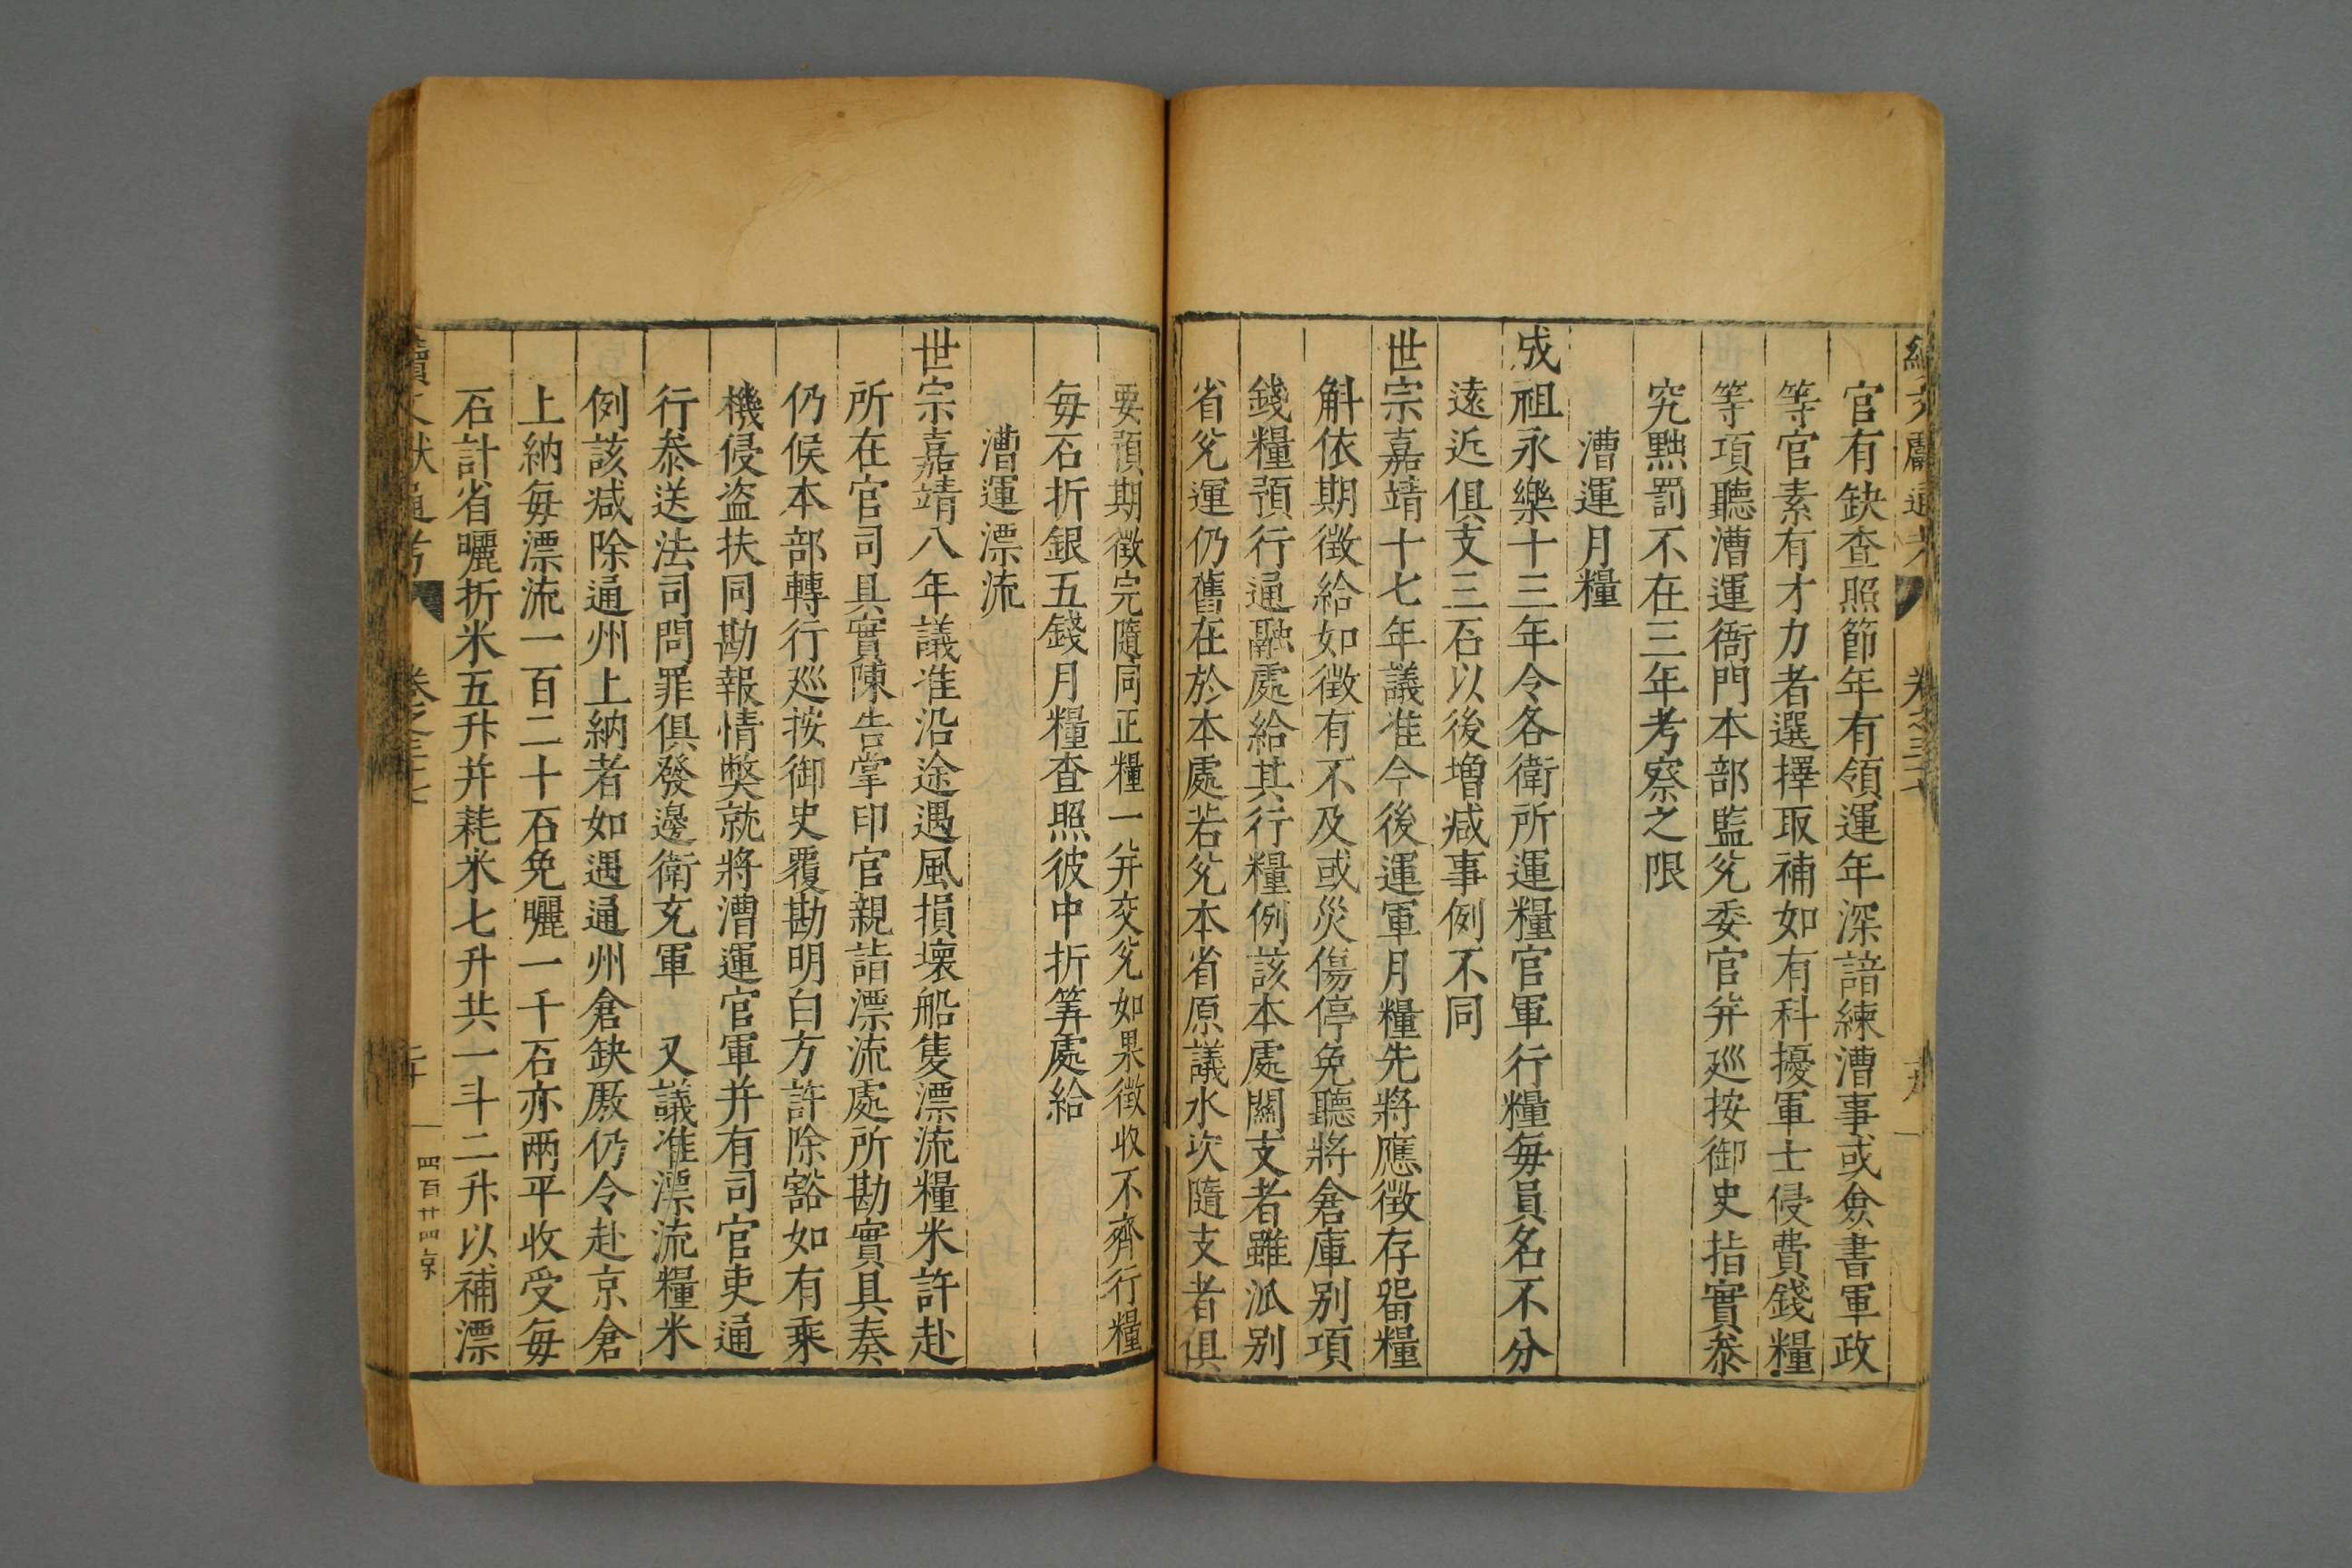 續文獻通考 卷之三十七 十九
官有缺查照節年有領運年深諳練漕事或僉書軍政
等官素有才力者選擇取補如有科擾軍士侵費錢糧
等項聽漕運衙門本部監兊委官并廵按御史指實叅
究黜罰不在三年考察之限
漕運月糧
成祖永樂十三年令各衛所運糧官軍行糧每員名不分
遠近俱支三石以後增减事例不同
世宗嘉靖十七年議准今後運軍月糧先將應徵存畱糧
斛依期徵給如徵有不及或災傷停免聽將倉庫别項
錢糧預行通融處給其行糧例該本處關支者雖派别
省兊運仍舊在於本處若兊本省原議水次隨支者俱
要預期徵完隨同正糧一并交兊如果徵收不齊行糧
每石折銀五錢月糧查照彼中折筭處給
漕運漂流
世宗嘉靖八年議准沿途遇風損壞船隻漂流糧米許赴
所在官司具實陳告掌印官親詣漂流處所勘實具奏
仍候本部轉行廵按御史覆勘明白方許除豁如有乘
機侵盗扶同勘報情獘就將漕運官軍并有司官吏通
行叅送法司問罪俱發邊衛充軍 又議准漂流糧米
例該减除通州上納者如遇通州倉缺厫仍令赴京倉
上納每漂流一百二十石免曬一千石亦兩平收受每
石計省曬折米五升并耗米七升共一斗二升以補漂
續文獻通考 卷之三十七 二十 四百廿四